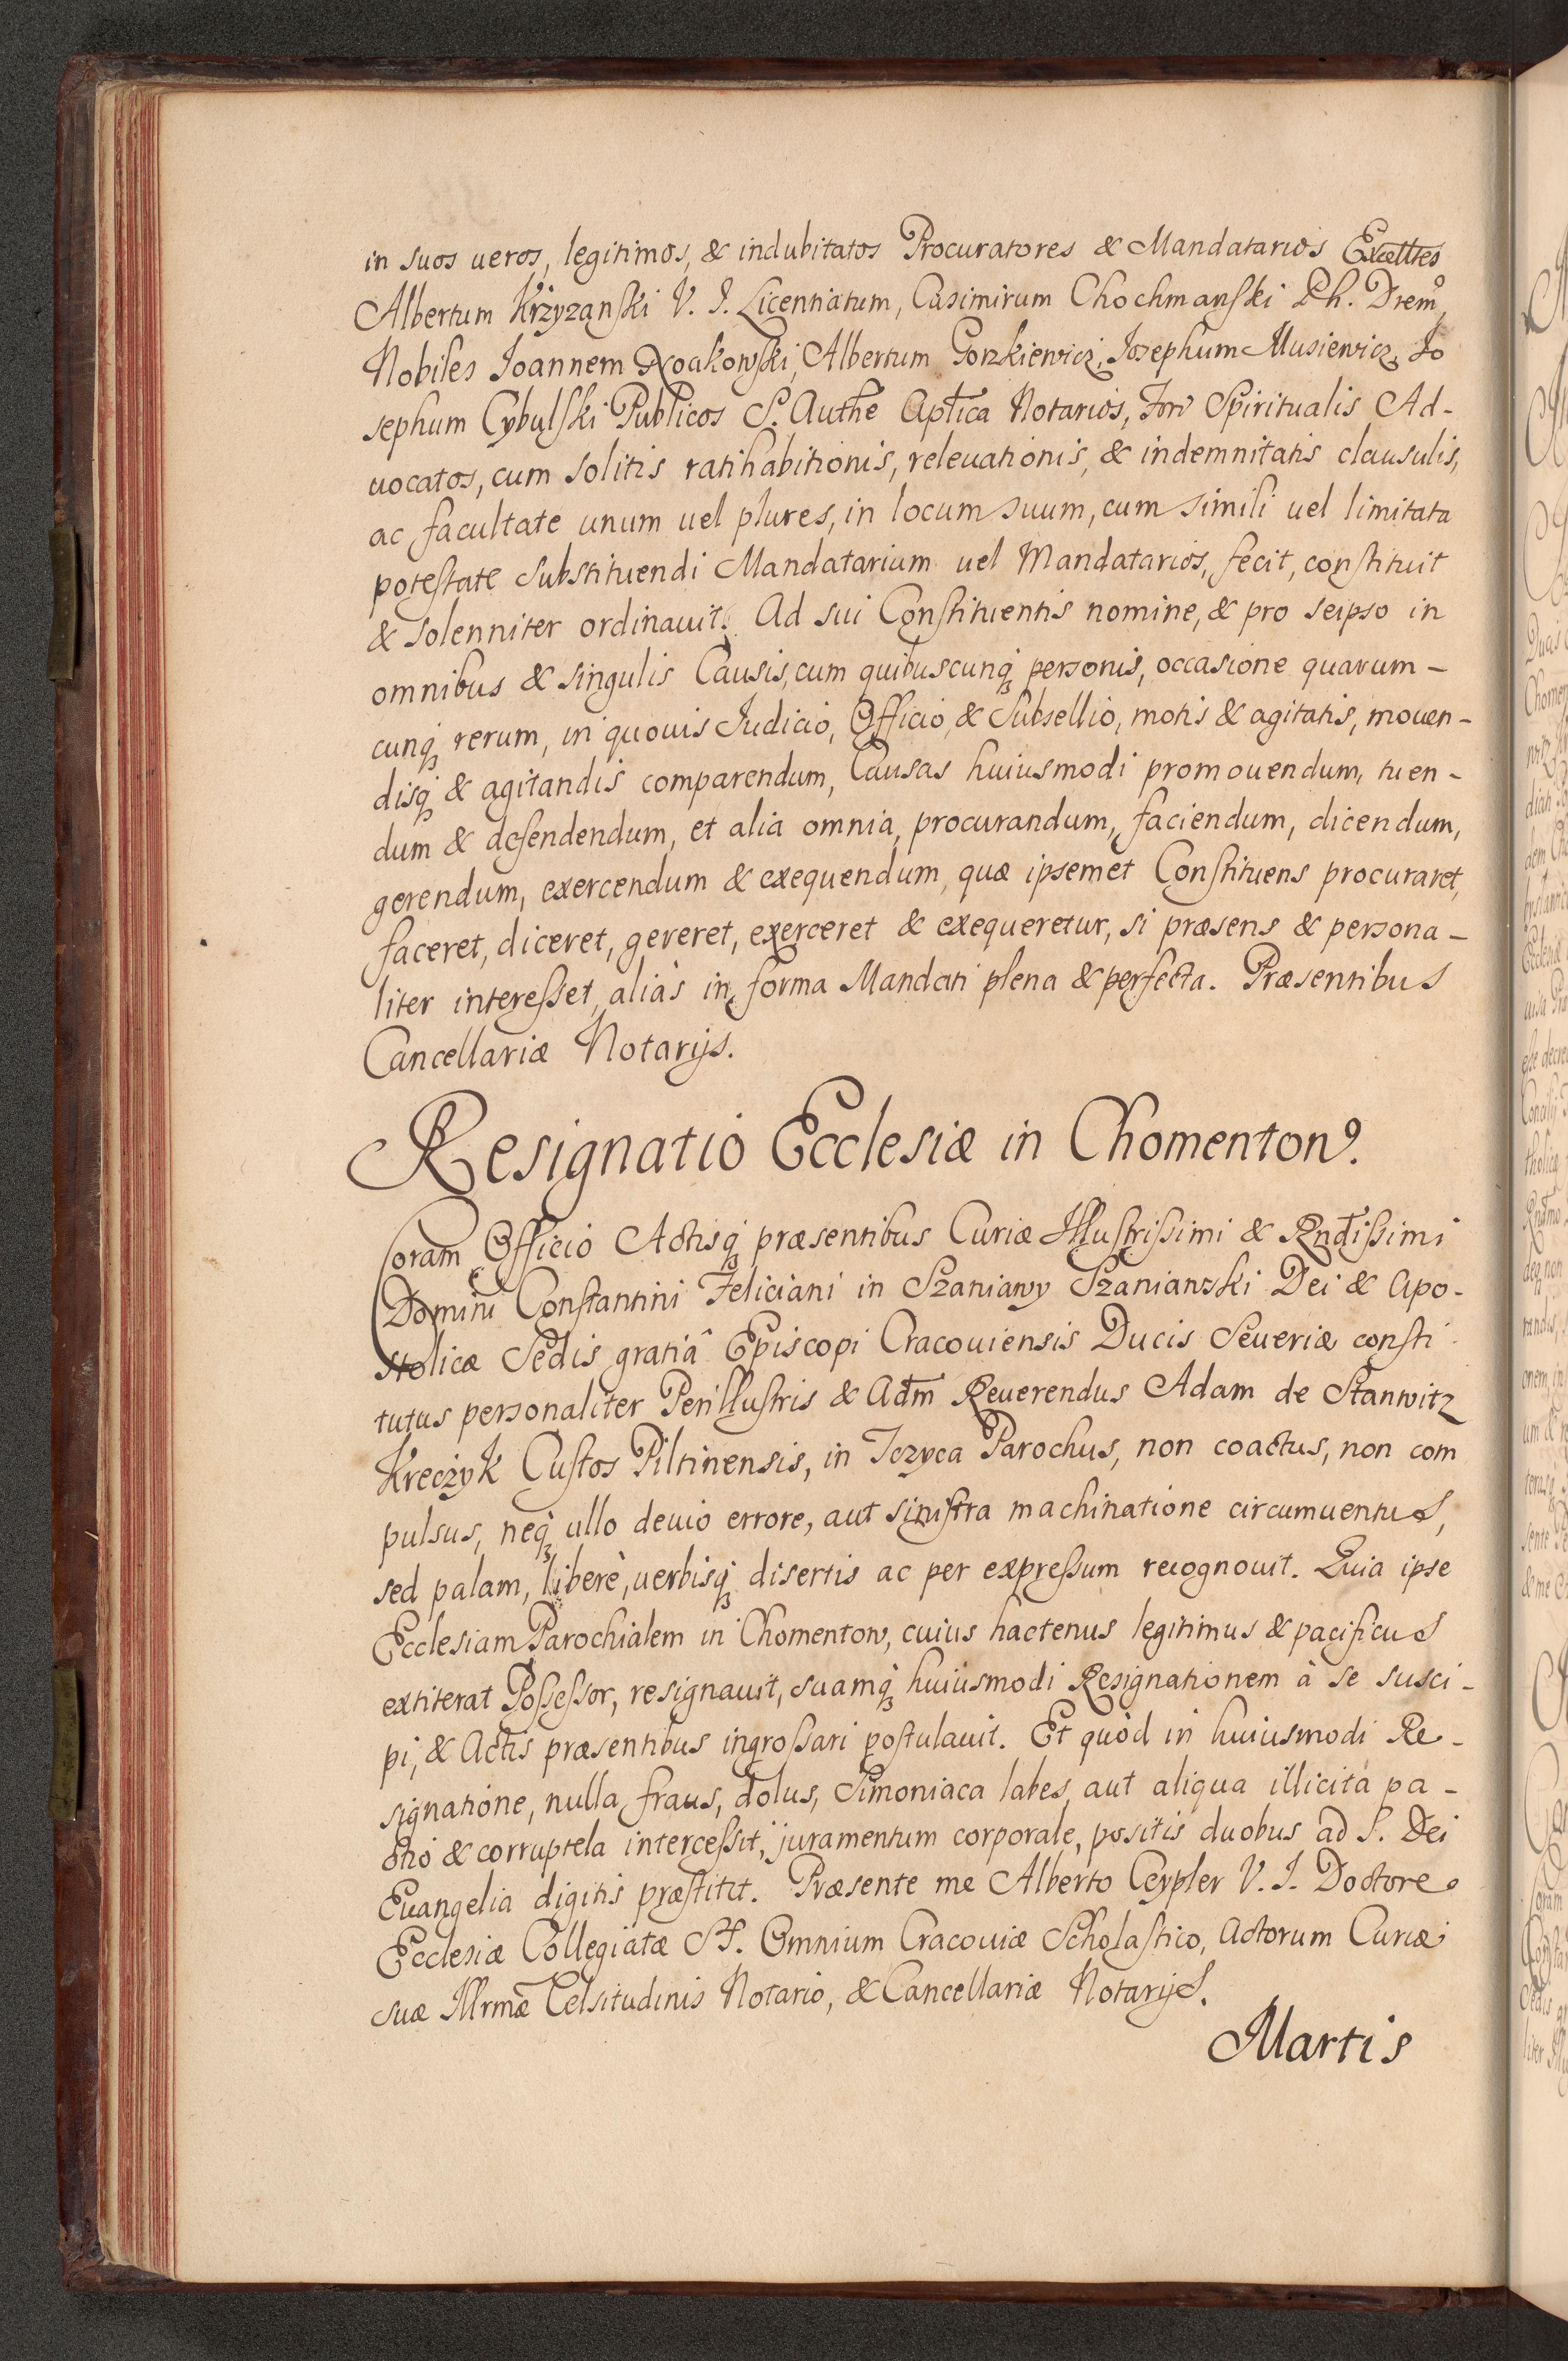 in suos ueros, legitimos, & indubitatos Procuratores & Mandatarios Excelltes
Albertum Krzyzanski V. J. Licentiatum, Casimirum Chochmanski Ph. Drem,
Nobiles Joannem Noakowski, Albertum Gorzkiewicz, Josephum Musiewicz, Jo
sephum Cybulski Publicos S. Authe Aptica Notarios, Fori Spiritualis Ad-
uocatos, cum solitis ratihabitionis, releuationis, & indemnitatis clausulis,
ac facultate unum uel plures, in locum suum, cum simili uel limitata
potestate substituendi Mandatarium uel Mandatarios, fecit, constituit
& solenniter ordinauit. Ad sui Constituentis nomine, & pro seipso in
omnibus & singulis Causis, cum quibuscunq; personis, occasione quarum-
cunq; rerum, in quouis Judicio, Officio, & Subsellio, motis & agitatis, mouen-
disq; & agitandis comparendum, Causas huiusmodi promouendum, tuen-
dum & defendendum, et alia omnia, procurandum, faciendum, dicendum,
gerendum, exercendum & exequendum, quæ ipsemet Constituens procuraret,
faceret, diceret, gereret, exerceret & exequeretur, si præsens & persona-
liter interesset, aliàs in forma Mandati plena & perfecta. Præsentibus
Cancellariæ Notarijs.
Resignatio Ecclesiæ in Chomentow.
Coram Officio Actisq; præsentibus Curiæ Illustrissimi & Rndissimi
Domini Constantini Feliciani in Szaniawy Szaniawski Dei & Apo-
stolicæ Sedis gratiâ Episcopi Cracouiensis Ducis Seueriæ consti
tutus personaliter Perillustris & Adm Reuerendus Adam de Stanwitz
Kreczyk Custos Piltinensis, in Tczyca Parochus, non coactus, non com
pulsus, neq; ullo deuio errore, aut sinistra machinatione circumuentus,
sed palam, liberè, uerbisq; disertis ac per expressum recognouit. Quia ipse
Ecclesiam Parochialem in Chomentow, cuius hactenus legitimus & pacificus
extiterat Possessor, resignauit, suamq; huiusmodi Resignationem à se susci-
pi, & Actis præsentibus ingrossari postulauit. Et quòd in huiusmodi Re-
signatione, nulla fraus, dolus, Simoniaca labes, aut aliqua illicita pa-
ctio & corruptela intercessit, juramentum corporale, positis duobus ad S. Dei
Euangelia digitis præstitit. Præsente me Alberto Ceypler V. J. Doctore
Ecclesiæ Collegiatæ SS. Omnium Cracouiæ Scholastico, Actorum Curiæ
suæ Illrmæ Celsitudinis Notario, & Cancellariæ Notarijs.
Martis